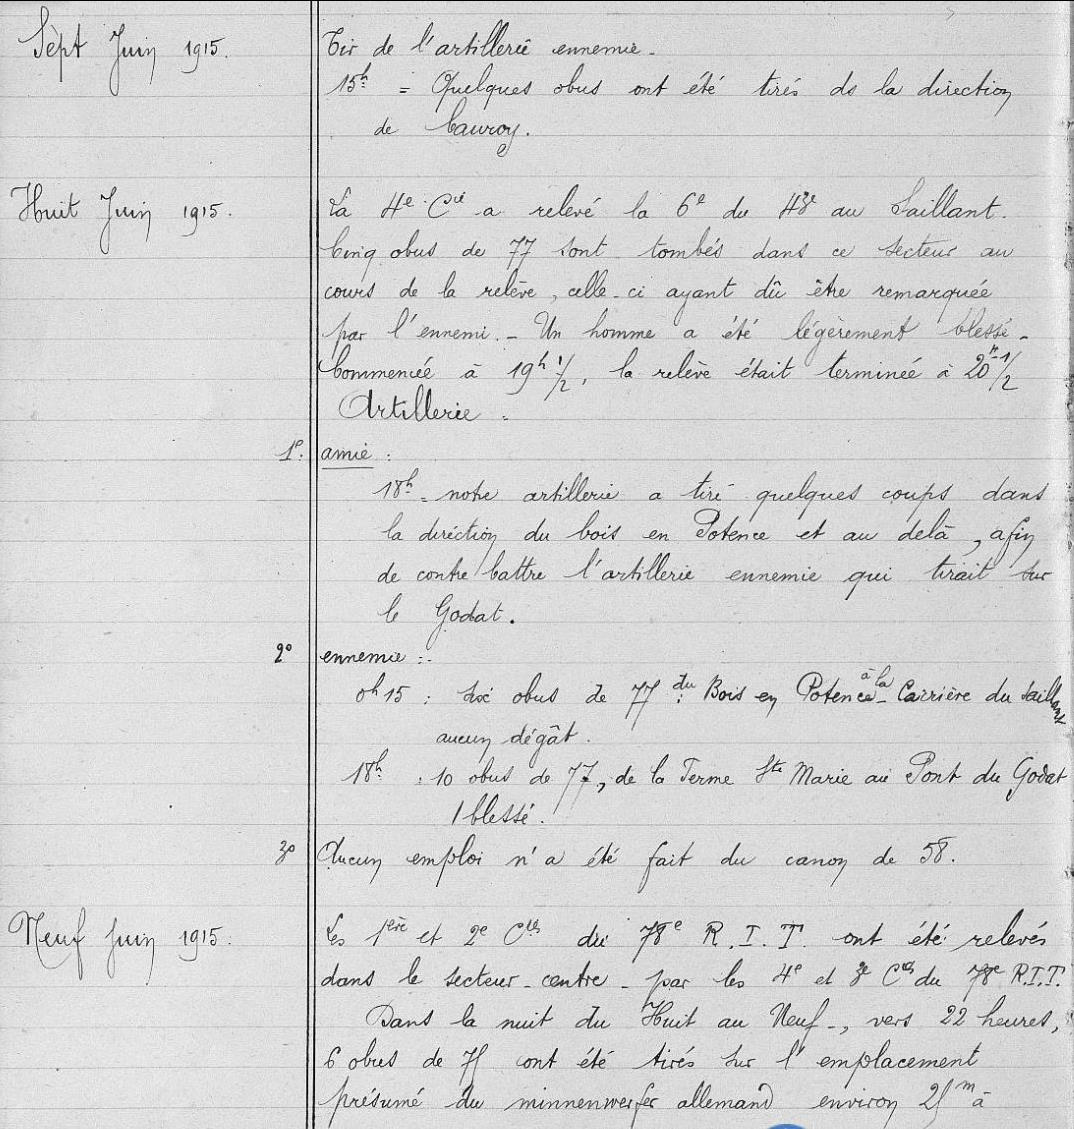 Sept Juin 1915.
Tir de l'artillerie ennemie.
15h = Quelques obus ont été tirés ds la direction
de Cauroy.
Huit Juin 1915.
La 4e Cie a relevé la 6e du 43e au Saillant.
Cinq obus de 77 sont tombés dans ce secteur au
cours de la relève, celle-ci ayant dû être remarquée
par l'ennemi. - Un homme a été légèrement blessé -
Commencée à 19h 1/2, la relève était terminée à 20h 1/2
Artillerie =
1e. amie :
18h = notre artillerie a tiré quelques coups dans
la diréction du bois en Potence et au delà, afin
de contre battre l'artillerie ennemie qui tirait sur
le Godat.
2° ennemie :.
0h15 : obus de 77 du Bois en Potence à la Carrière du Saillant
aucun dégât.
18h : 10 obus de 77, de la Ferme Ste Marie au Pont du Godat
1 blessé.
3° Aucun emploi n'a été fait du canon de 58.
Neuf Juin 1915.
Les 1ère et 2e Cies du 78e R.I.T. ont été relevés
dans le secteur-centre - par les 4e et 3e Cies du 78e R.I.T.
Dans la nuit du Huit au Neuf-, vers 22 heures,
6 obus de 75 ont été tirés sur l'emplacement
présumé du minnenwerfer allemand environ 25m à